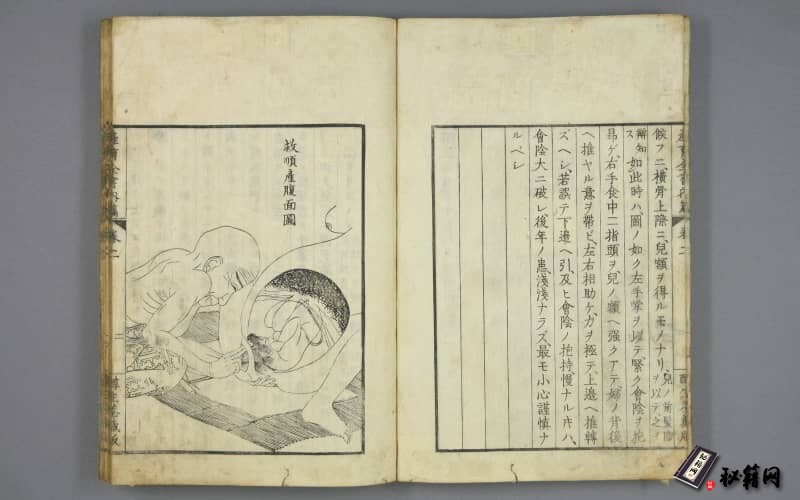 候フニ、横骨上際ニ、兒額ヲ得ルモノナリ、兒ノ前髪際ヲ以テ之ノ
辨知ス如此時ハ圖ノ如ク左手掌ヲ以テ、緊ク會陰ヲ抱
昂ゲ、右手食中二指頭ヲ、兒ノ額ヘ强クアテ、婦ノ背後
ヘ推ヤル意ヲ帶ビ、左右相助ケ、力ヲ極テ、上邊ヘ推轉
ズベシ、若誤テ下邊ヘ引、及ヒ會陰ノ抱持慢ナル片ハ、
會陰大ニ破レ後年ノ患淺淺ナラズ、最モ小心謹慎ナ
ルベシ
卷二
救順產腹面圖
卷二
秘籍网